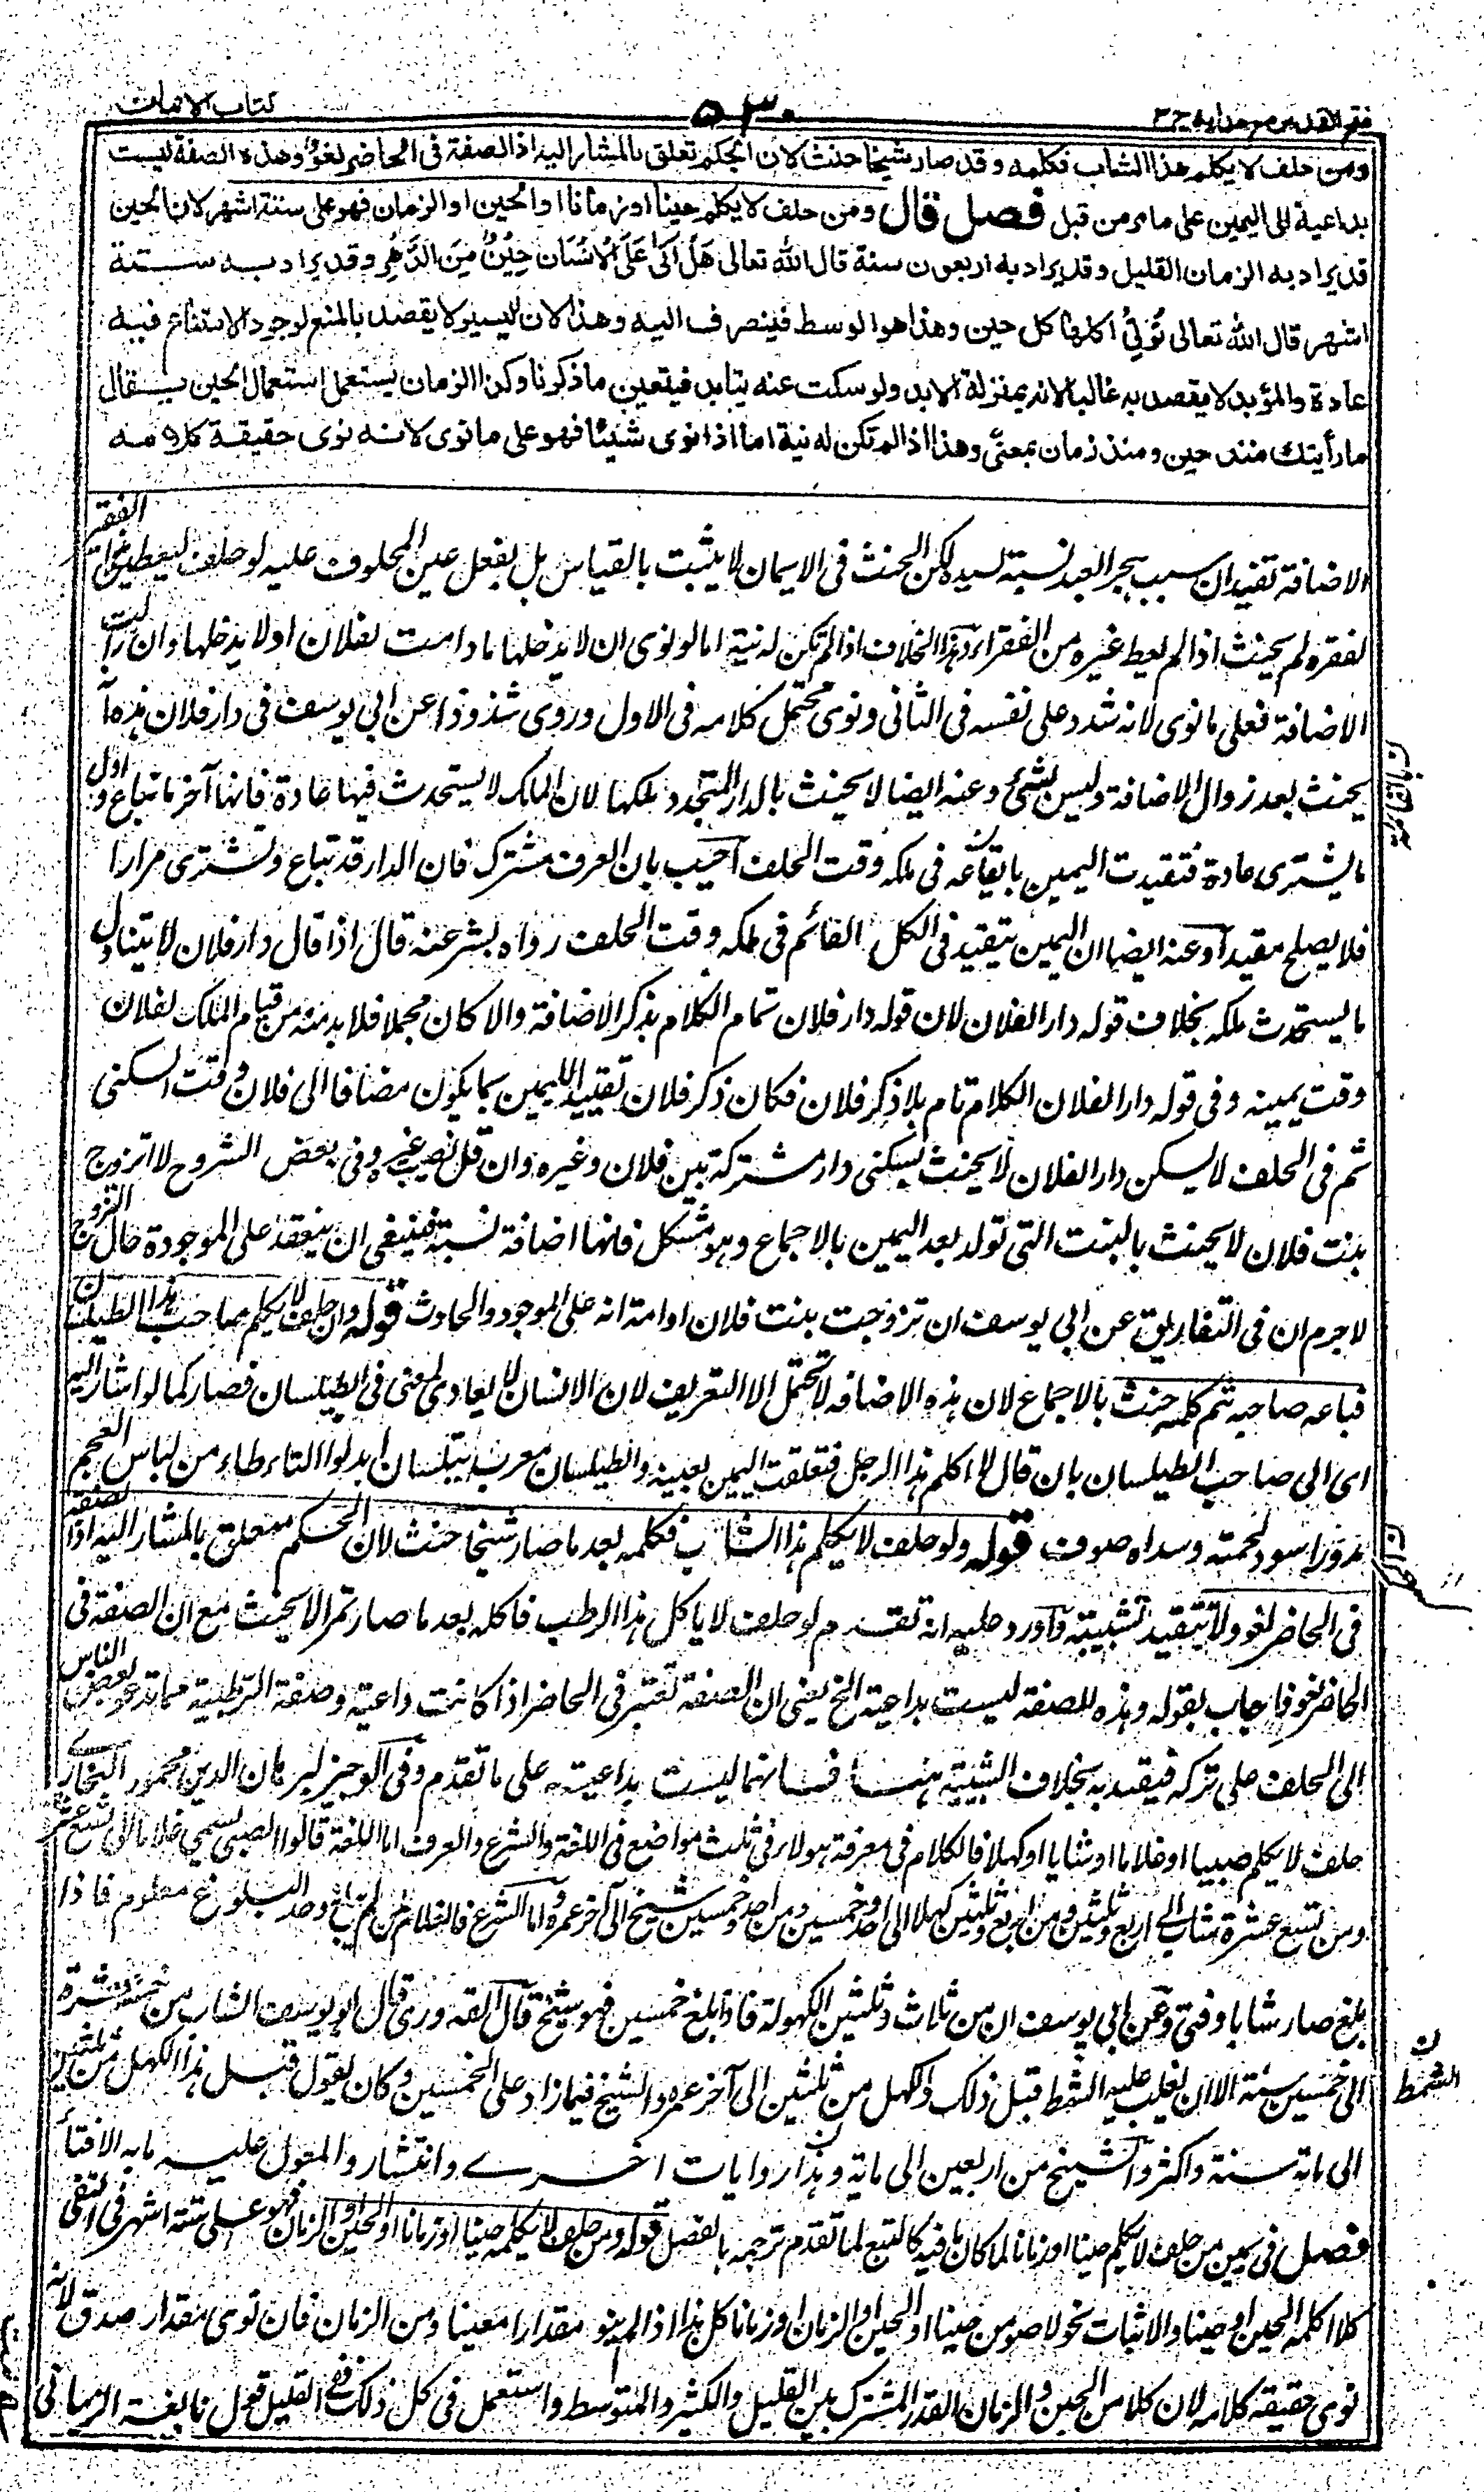 فتح القدير مع هداية ج ٢
٥٣٠
كتاب الايمان
ومن حلف لا يكلم هذا الشاب فكلمه وقد صار شيخا حنث لان الحكم تعلق بالمشار اليه اذ الصفة في الحاضر لغو وهذه الصفة ليست
بداعية الى اليمين على ما مر من قبل فصل قال ومن حلف لا يكلم حينا او زمانا او الحين او الزمان فهو على ستة اشهر لان الحين
قد يراد به الزمان القليل وقد يراد به اربعون سنة قال الله تعالى هَلْ اَتٰى عَلَى الْاِنْسَانِ حِيْنٌ مِّنَ الدَّهْرِ وقد يراد به ستة
اشهر قال الله تعالى تُؤْتِيْ اكلها كل حين وهذا هو الوسط فينصرف اليه وهذا لان اليسير لا يقصد بالمنع لوجود الامتناع فيه
عادة والمؤبد لا يقصد به غالبا لانه بمنزلة الابد ولو سكت عنه يتابد فيتعين ما ذكرنا وكذا الزمان يستعمل استعمال الحين يقال
ما رأيتك منذ حين ومنذ زمان بمعنًى وهذا اذا لم تكن له نية اما اذا نوى شيئا فهو على ما نوى لانه نوى حقيقة كلامه
الاضافة تفيد ان سبب هجر العبد نسبته لسيده لكن الحنث في الايمان لا يثبت بالقياس بل بفعل عين المحلوف عليه لو حلف ليعطين هذا الفقير
لفقره لم يحنث اذا لم يعط غيره من الفقراء وهذا الخلاف اذا لم تكن له نية اما لو نوى ان لا يدخلها ما دامت لفلان او لا يدخلها وان زالت
الاضافة فعلى ما نوى لانه شدد على نفسه في الثاني ونوى محتمل كلامه في الاول وروى شذوذا عن ابي يوسف في دار فلان هذه لا
يحنث بعد زوال الاضافة وليس بشئ وعنه ايضا لا يحنث بالدار المتجدد ملكها لان الملك لا يستحدث فيها عادة فانها آخر ما تباع واول
ما يشترى عادة فتقيدت اليمين بالقائمة في ملكه وقت الحلف اجيب بان العرف مشترك فان الدار قد تباع وتشترى مرارا
فلا يصلح مقيدا وعنه ايضا ان اليمين يتقيد في الكل القائم في ملكه وقت الحلف رواه بشر عنه قال اذا قال دار فلان لا يتناول
ما يستحدث ملكه بخلاف قوله دار الفلان لان قوله دار فلان تمام الكلام بذكر الاضافة والا كان مجملا فلا بد منه من قيام الملك لفلان
وقت يمينه وفي قوله دار الفلان الكلام تام بلا ذكر فلان فكان ذكر فلان تقييد اليمين بما يكون مضافا الى فلان وقت السكنى
ثم في الحلف لا يسكن دار الفلان لا يحنث بسكنى دار مشتركة بين فلان وغيره وان قل نصيب غيره وفي بعض الشروح لا اتزوج
بنت فلان لا يحنث بالبنت التي تولد بعد اليمين بالاجماع وهو مشكل فانها اضافة نسبة فينبغي ان ينعقد على الموجودة حال التزوج
لا جرم ان في التفاريق عن ابي يوسف ان تزوجت بنت فلان او امته انه على الموجود والحادث قوله وان حلف لا يكلم صاحب هذا الطيلسان
فباعه صاحبه ثم كلمه حنث بالاجماع لان هذه الاضافة لا تحتمل الا التعريف لان الانسان لا يعادى لمعنى في الطيلسان فصار كما لو اشار اليه
اى الى صاحب الطيلسان بان قال لا اكلم هذا الرجل فتعلقت اليمين بعينه والطيلسان معرب تيلسان ابدلوا التاء طاء من لباس العجم
مدور اسود لحمته وسداه صوف قوله ولو حلف لا يكلم هذا الشاب فكلمه بعد ما صار شيخا حنث لان الحكم متعلق بالمشار اليه اذا الصفة
في الحاضر لغو ولا تتقيد بشبيبته واورد عليه انه تقدم لو حلف لا يأكل هذا الرطب فاكله بعد ما صار تمرا لا يحنث مع ان الصفة في
الحاضر لغو فاجاب بقوله وهذه الصفة ليست بداعية الخ يعنى ان الصفة تعتبر في الحاضر اذا كانت داعية وصفة الرطبية مما تدعو بعض الناس
الى الحلف على تركه فيقيد به بخلاف الشبيبة هنا فانها ليست بداعية على ما تقدم وفي الوجيز لبرهان الدين محمود البخارى
حلف لا يكلم صبيا او غلاما او شابا او كهلا فالكلام في معرفة هولاء في ثلث مواضع في اللغة والشرع والعرف اما اللغة قالوا الصبى يسمى غلاما الى تسع عشرة
ومن تسع عشرة شاب الى اربع وثلثين ومن اربع وثلثين كهلا الى احد وخمسين ومن احد وخمسين شيخ الى آخر عمره واما الشرع فالغلام من لم يبلغ وحد البلوغ معلوم فاذا
بلغ صار شابا وفتى وعن ابي يوسف ان من ثلاث وثلثين الكهولة فاذا بلغ خمسين فهو شيخ قال القدورى قال ابو يوسف الشاب من خمسة عشرة
الى خمسين سنة الا ان يغلب عليه الشمط قبل ذلك والكهل من ثلثين الى آخر عمره والشيخ فيما زاد على الخمسين وكان يقول قبل هذا الكهل من ثلثين
الى مائة سنة واكثر والشيخ من اربعين الى مائة وهذا روايات اخرى وانتشار والمعول عليه ما به الافتاء
فصل في يمين من حلف لا يكلم حينا او زمانا لما كان ما فيه كالتبع لما تقدم ترجمه بالفصل قوله ومن حلف لا يكلمه حينا او زمانا او الحين او الزمان فهو على ستة اشهر في النفى
كلا اكلمه الحين او حينا والاثبات نحو لاصومن حينا او الحين او الزمان او زمانا كل هذا اذا لم ينو مقدارا معينا ومن الزمان فان نوى مقدار صدق لانه
نوى حقيقة كلامه لان كلا من الحين والزمان القدر المشترك بين القليل والكثير والمتوسط واستعمل في كل ذلك ففى القليل قول نابغة
ن
الشمط